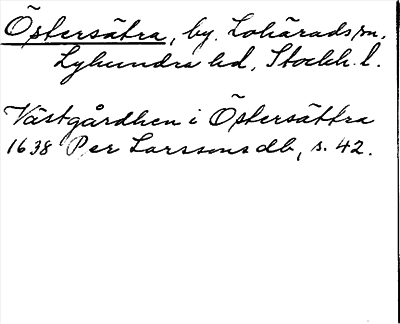 Östersätra, by. Lohärads sn,
Lyhundra hd, Stockh. l.
Västgårdhen i Östersättra
1638 Per Larssons db, s. 42.